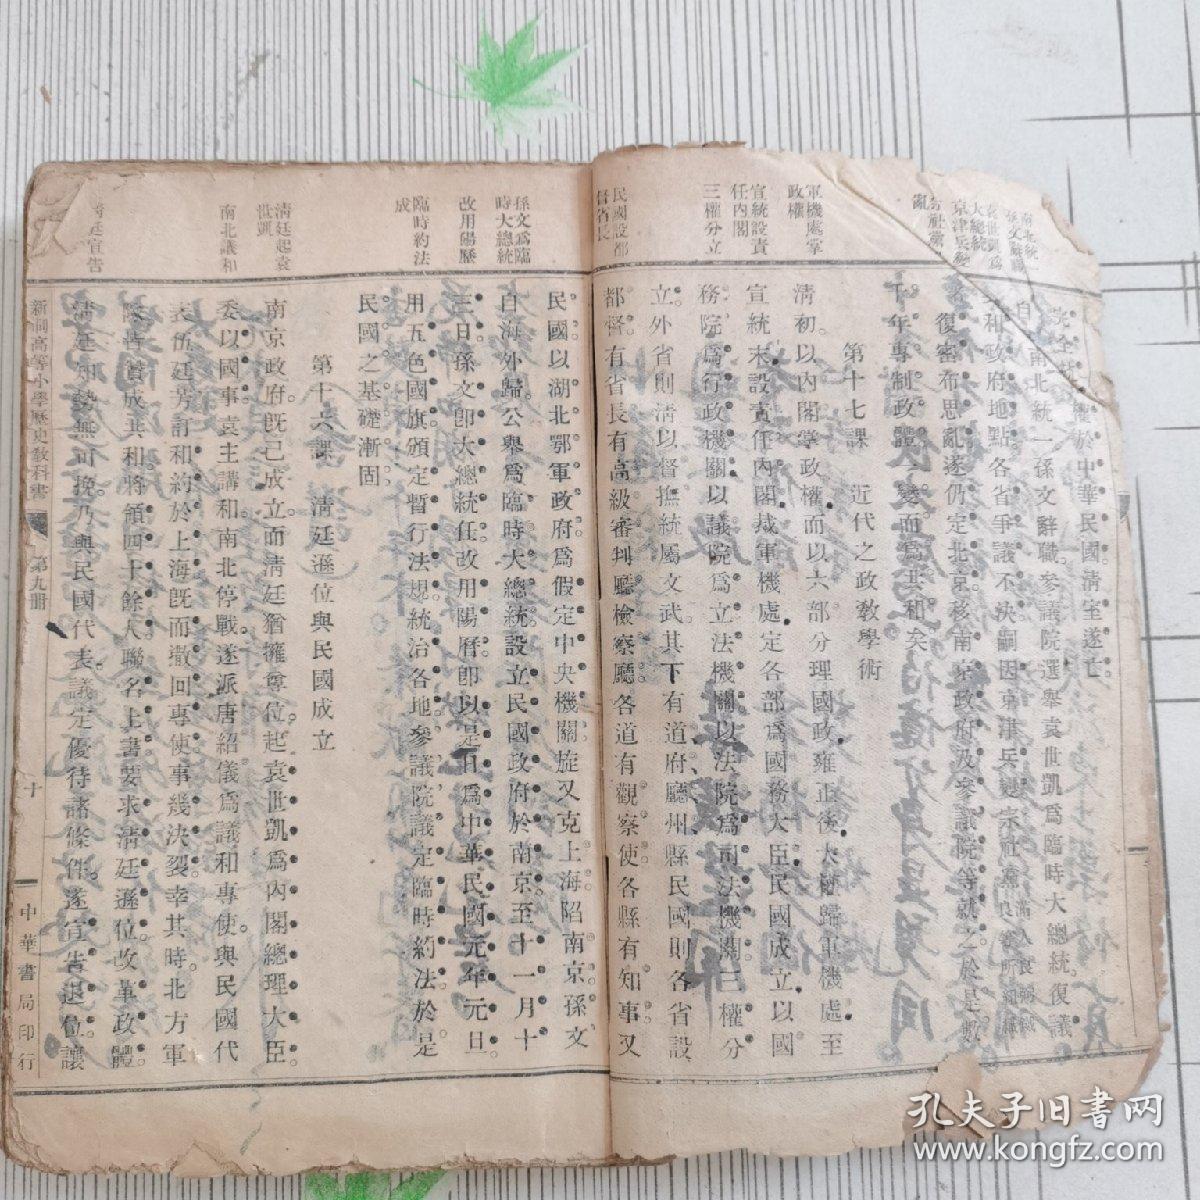 孫文辭職
袁世凱爲
大總統
京津兵變
宗社黨
亂
軍機處掌
政權
宣統設責
任內閣
三權分立
民國設都
督省長
權於中華民國淸室遂亡
南北統一孫文辭職參議院選舉袁世凱爲臨時大總統復議
和政府地點各省爭議不決嗣因京津兵變宗社黨
復密布思亂遂仍定北京核南京政府及參議院等就之於是數
千年專制政體一變而爲共和矣
第十七課 近代之政敎學術
淸初以內閣掌政權而以六部分理國政雍正後大權歸軍機處至
宣統末設責任內閣裁軍機處定各部爲國務大臣民國成立以國
務院爲行政機關以議院爲立法機關以法院爲司法機關三權分
立外省則淸以督撫統屬文武其下有道府廳州縣民國則各省設
都督有省長有高級審判廳檢察廳各道有觀察使各縣有知事又
孫文爲臨
時大總統
改用陽曆
臨時約法
成
淸廷起袁
世凱
南北議和
淸廷宣告
民國以湖北鄂軍政府爲假定中央機關旋又克上海陷南京孫文
自海外歸公舉爲臨時大總統設立民國政府於南京至十一月十
三日孫文卽大總統任改用陽曆卽以是日爲中華民國元年元旦
用五色國旗頒定暫行法規統治各地參議院議定臨時約法於是
民國之基礎漸固
第十六課 淸廷遜位與民國成立
南京政府旣已成立而淸廷猶擁尊位起袁世凱爲內閣總理大臣
委以國事袁主講和南北停戰遂派唐紹儀爲議和專使與民國代
表伍廷芳訂和約於上海旣而撤回專使事幾決裂幸其時北方軍
隊皆贊成共和將領四十餘人聯名上書要求淸廷遜位改革政體
淸廷知勢無可挽乃與民國代表議定優待諸條件遂宣告退位讓
新制高等小學歷史敎科書 第九册 十 中華書局印行
孔夫子旧书网
www.kongfz.com